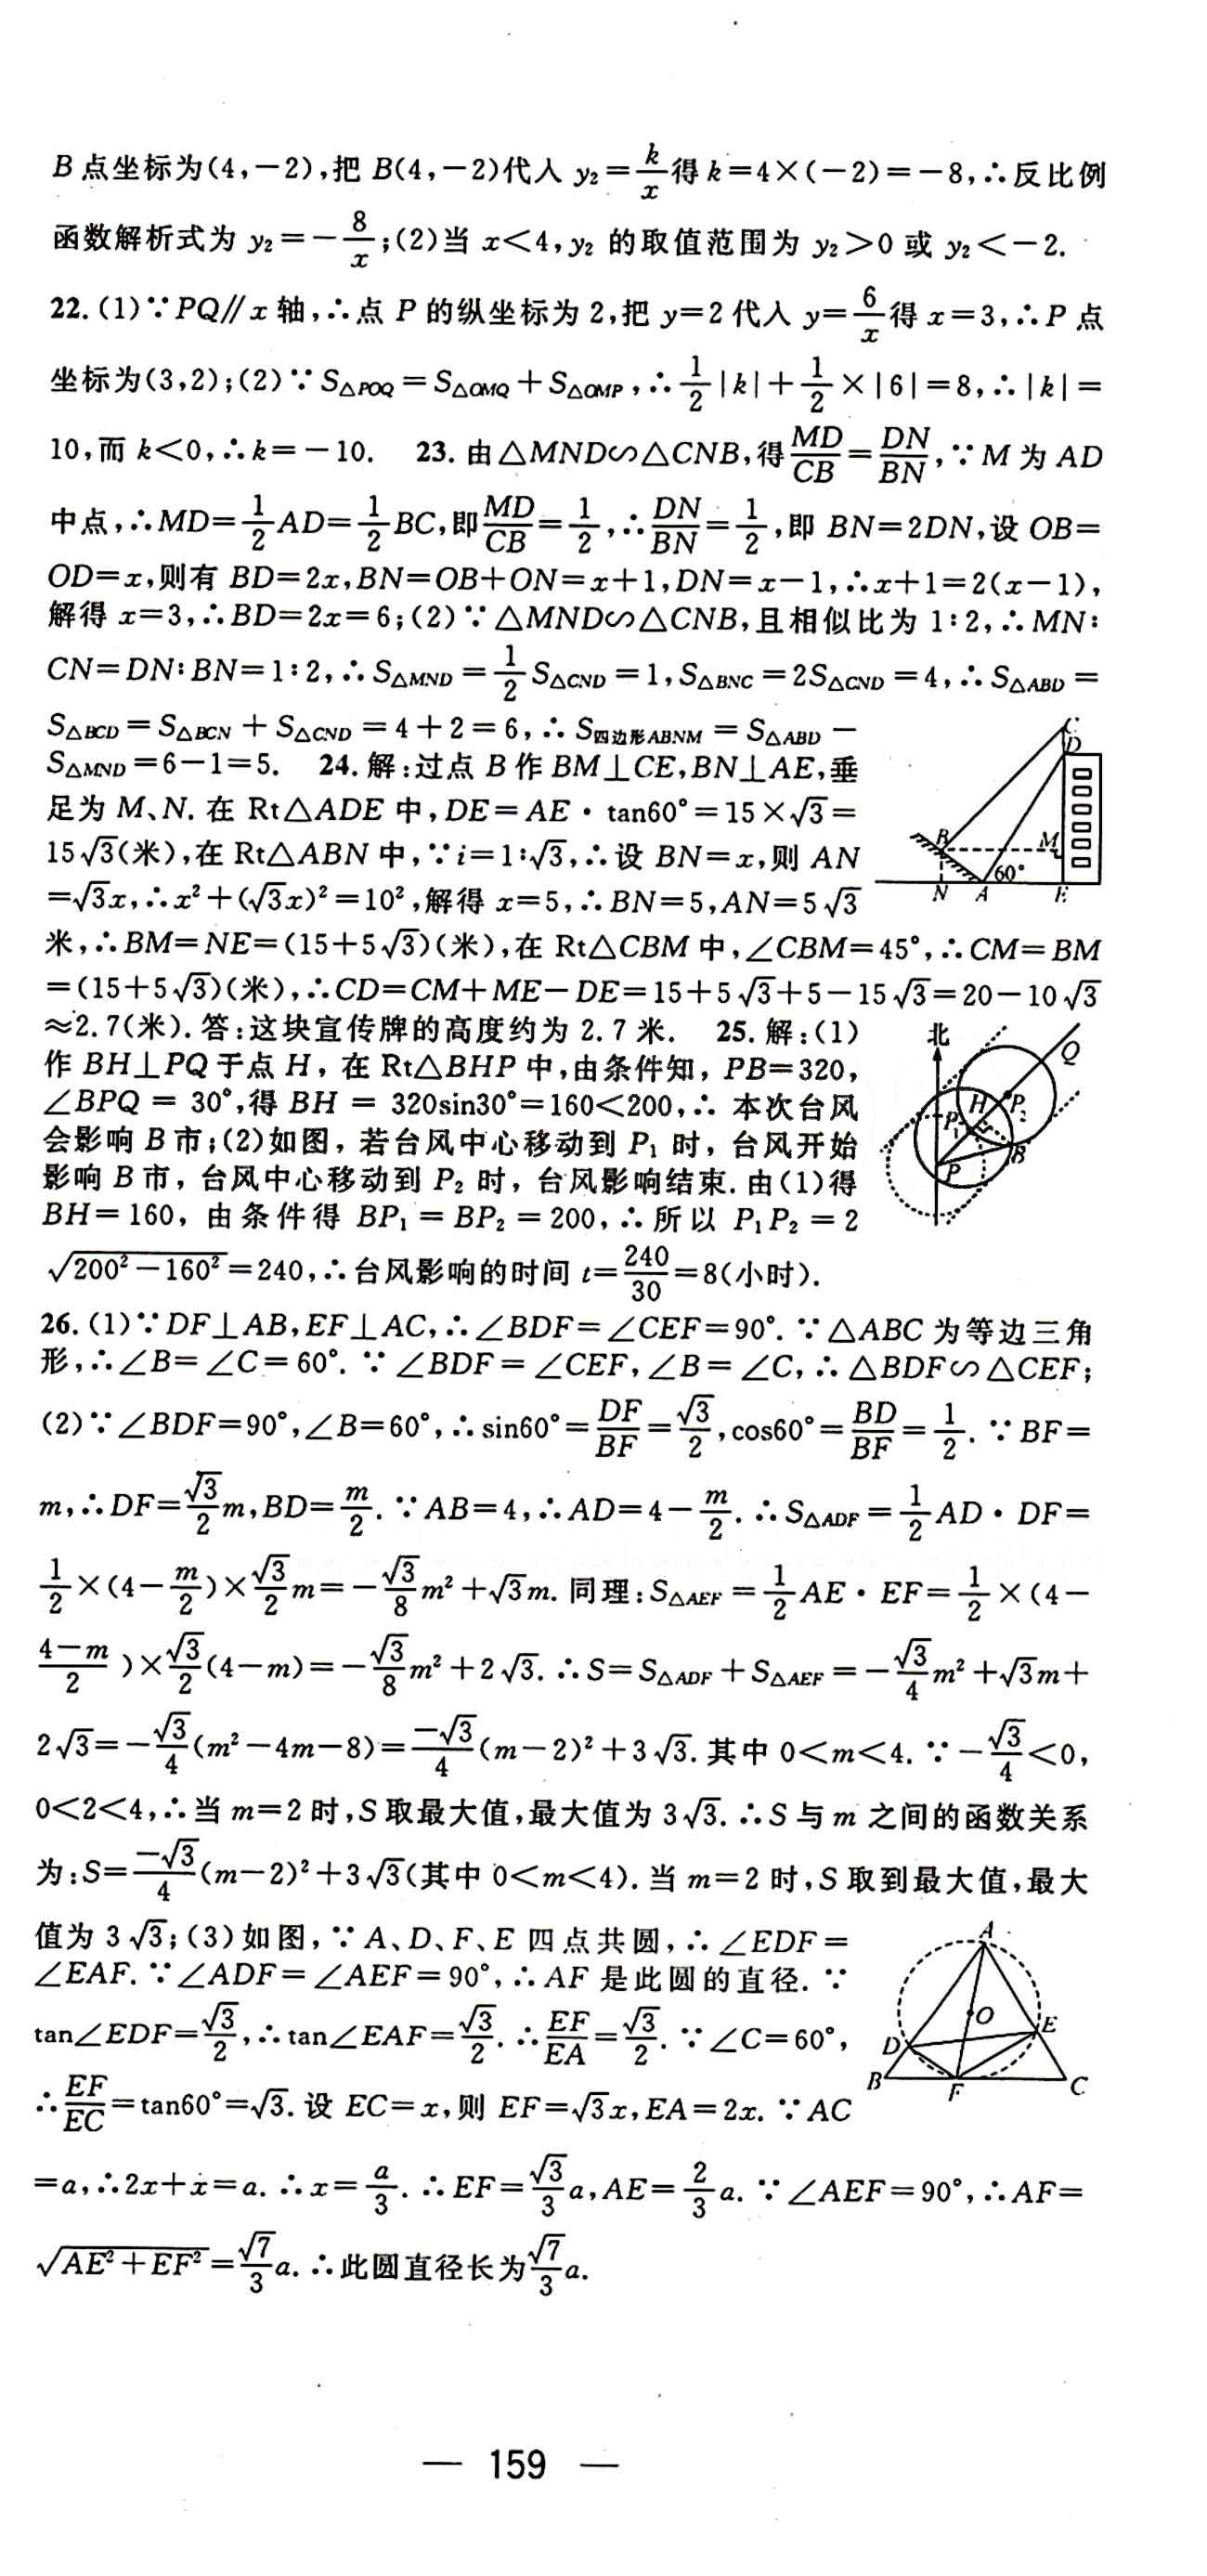 B点坐标为(4,-2),把 B(4,-2)代人 y₂=k/x得k=4×(-2)=-8,∴反比例
函数解析式为 y₂=-8/x;(2)当 x<4,y₂ 的取值范围为 y₂>0 或 y₂<-2.
22.(1)∵PQ∥x轴,∴点 P 的纵坐标为2,把y=2代人 y=6/x得x=3,∴P点
坐标为(3,2);(2)∵S△POQ=S△OMQ+S△OMP,∴1/2|k|+1/2×|6|=8,∴|k|=
10,而 k<0,∴k=-10. 23.由△MND∽△CNB,得MD/CB=DN/BN,∵M为AD
中点,∴MD=1/2AD=1/2BC,即MD/CB=1/2,∴DN/BN=1/2,即 BN=2DN,设 OB=
OD=x,则有 BD=2x,BN=OB+ON=x+1,DN=x-1,∴x+1=2(x-1),
解得 x=3,∴BD=2x=6;(2)∵△MND∽△CNB,且相似比为 1:2,∴MN:
CN=DN:BN=1:2,∴S△MND=1/2S△CND=1,S△BNC=2S△CND=4,∴S△ABD=
S△BCD=S△BCN+S△CND=4+2=6,∴S四边形ABNM=S△ABD-
S△MND=6-1=5. 24.解:过点 B 作 BM⊥CE,BN⊥AE,垂
足为 M、N.在 Rt△ADE 中,DE=AE·tan60°=15×√3=
15√3(米),在 Rt△ABN 中,∵i=1:√3,∴设 BN=x,则 AN
=√3x,∴x²+(√3x)²=10²,解得 x=5,∴BN=5,AN=5√3
C
D
B
M
60°
N A E
米,∴BM=NE=(15+5√3)(米),在 Rt△CBM 中,∠CBM=45°,∴CM=BM
=(15+5√3)(米),∴CD=CM+ME-DE=15+5√3+5-15√3=20-10√3
≈2.7(米).答:这块宣传牌的高度约为 2.7 米. 25.解:(1)
作 BH⊥PQ于点 H,在 Rt△BHP 中,由条件知,PB=320,
∠BPQ = 30°,得 BH = 320sin30°=160<200,∴ 本次台风
会影响 B 市;(2)如图,若台风中心移动到 P₁ 时,台风开始
影响 B 市,台风中心移动到 P₂ 时,台风影响结束.由(1)得
BH=160, 由条件得 BP₁=BP₂=200,∴所以 P₁P₂=2
北
Q
H P₂
P₁
B
P
√(200²-160²)=240,∴台风影响的时间 t=240/30=8(小时).
26.(1)∵DF⊥AB,EF⊥AC,∴∠BDF=∠CEF=90°.∵△ABC 为等边三角
形,∴∠B=∠C=60°.∵∠BDF=∠CEF,∠B=∠C,∴△BDF∽△CEF;
(2)∵∠BDF=90°,∠B=60°,∴sin60°=DF/BF=√3/2,cos60°=BD/BF=1/2.∵BF=
m,∴DF=√3/2m,BD=m/2.∵AB=4,∴AD=4-m/2.∴S△ADF=1/2AD·DF=
1/2×(4-m/2)×√3/2m=-√3/8m²+√3m.同理:S△AEF=1/2AE·EF=1/2×(4-
(4-m)/2)×√3/2(4-m)=-√3/8m²+2√3.∴S=S△ADF+S△AEF=-√3/4m²+√3m+
2√3=-√3/4(m²-4m-8)=-√3/4(m-2)²+3√3.其中 0<m<4.∵-√3/4<0,
0<2<4,∴当 m=2 时,S取最大值,最大值为 3√3.∴S与m 之间的函数关系
为:S=-√3/4(m-2)²+3√3(其中 0<m<4).当 m=2 时,S 取到最大值,最大
值为 3√3;(3)如图,∵A、D、F、E 四点共圆,∴∠EDF=
∠EAF.∵∠ADF=∠AEF=90°,∴AF 是此圆的直径.∵
tan∠EDF=√3/2,∴tan∠EAF=√3/2.∴EF/EA=√3/2.∵∠C=60°,
∴EF/EC=tan60°=√3.设 EC=x,则 EF=√3x,EA=2x.∵AC
A
O
E
D
B F C
=a,∴2x+x=a.∴x=a/3.∴EF=√3/3a,AE=2/3a.∵∠AEF=90°,∴AF=
√(AE²+EF²)=√7/3a.∴此圆直径长为√7/3a.
— 159 —